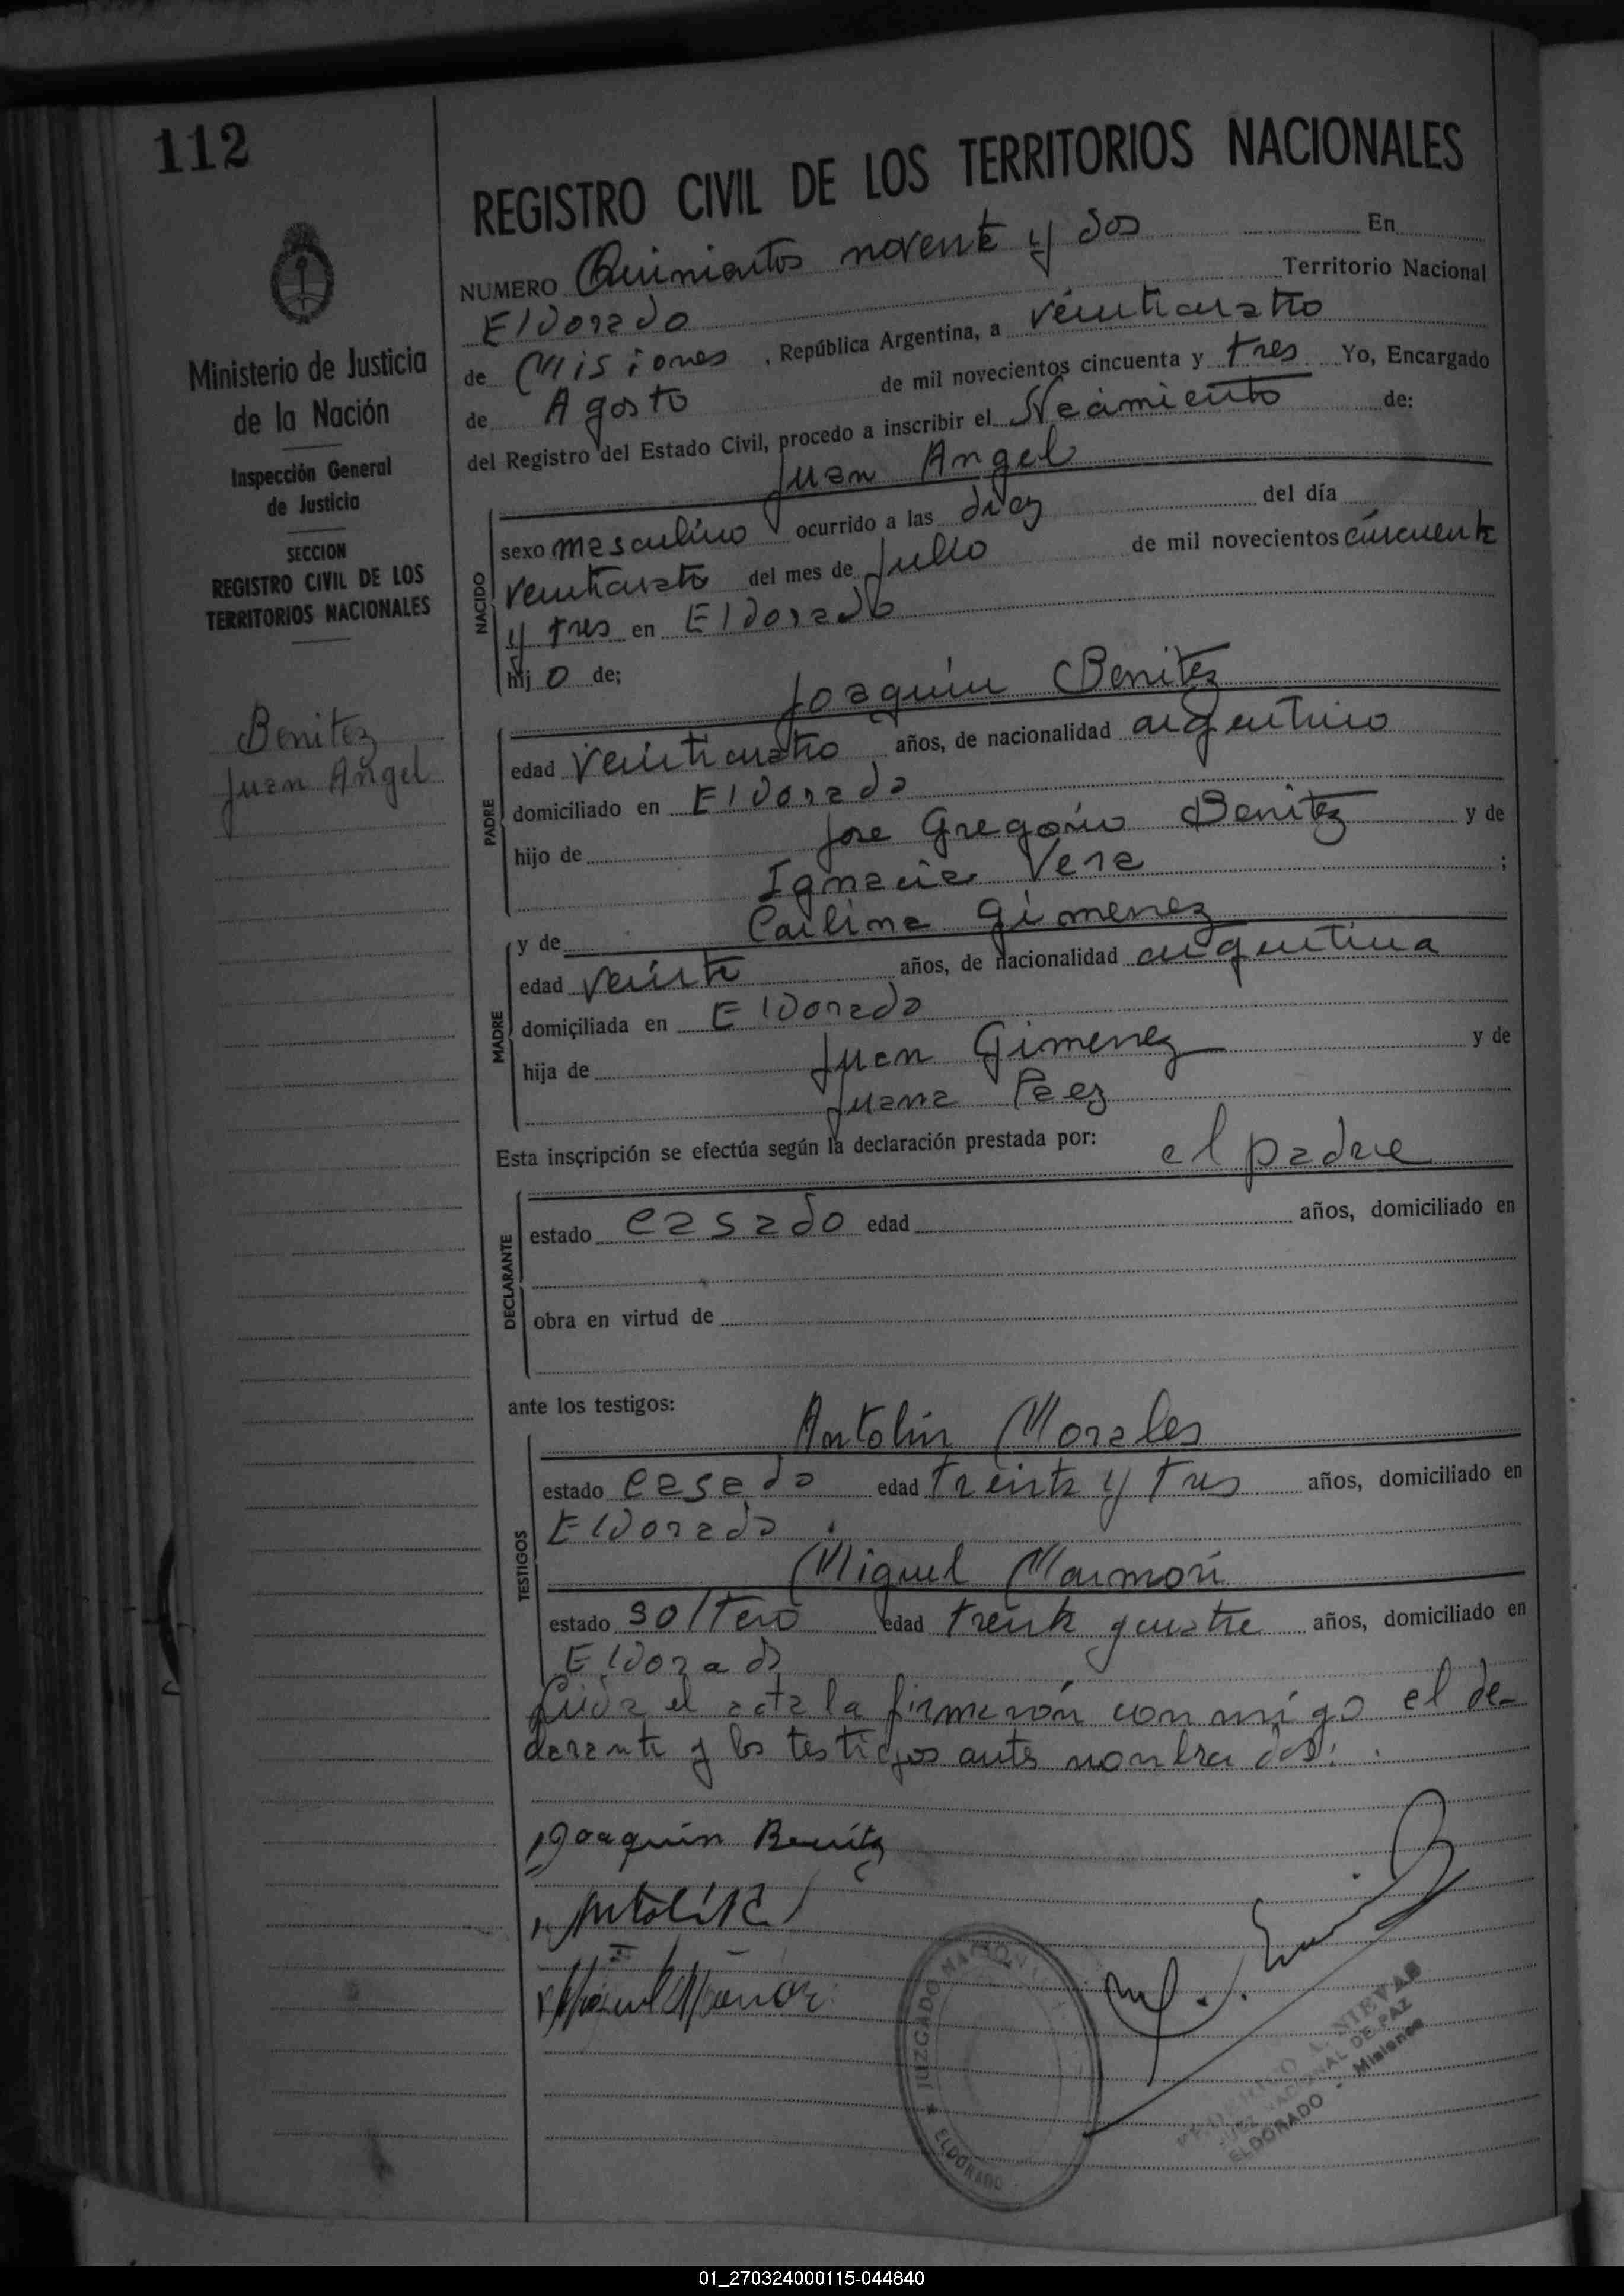 112
REGISTRO CIVIL DE LOS TERRITORIOS NACIONALES
Ministerio de Justicia
de la Nación
Inspección General
de Justicia
SECCION
REGISTRO CIVIL DE LOS
TERRITORIOS NACIONALES
Benitez
Juan Angel
NUMERO Quinientos noventa y dos En
Eldorado Territorio Nacional
de Misiones, República Argentina, a veinticuatro
de Agosto de mil novecientos cincuenta y tres Yo, Encargado
del Registro del Estado Civil, procedo a inscribir el Nacimiento de:
Juan Angel
NACIDO
sexo masculino ocurrido a las diez del día
veinticuatro del mes de Julio de mil novecientos cincuenta
y tres en Eldorado
hijo de:
Joaquín Benitez
PADRE
edad veinticuatro años, de nacionalidad argentino
domiciliado en Eldorado
hijo de Jose Gregorio Benitez y de
Ignacia Vera ;
MADRE
y de Carlina Gimenez
edad veinte años, de nacionalidad argentina
domiciliada en Eldorado
hija de Juan Gimenez y de
Juana Paez
Esta inscripción se efectúa según la declaración prestada por: el padre
DECLARANTE
estado casado edad años, domiciliado en
obra en virtud de
ante los testigos:
Antolín Morales
TESTIGOS
estado casado edad treinta y tres años, domiciliado en
Eldorado.
Miguel
estado soltero edad treinta años, domiciliado en
Eldorado
el acta la firmarón con migo el de-
clarante y los testigos antes nombrados.
Joaquín Benítez
JUZGADO NACIONAL
ELDORADO
NIEVAS
JUEZ NACIONAL DE PAZ
ELDORADO - Misiones
01_270324000115-044840